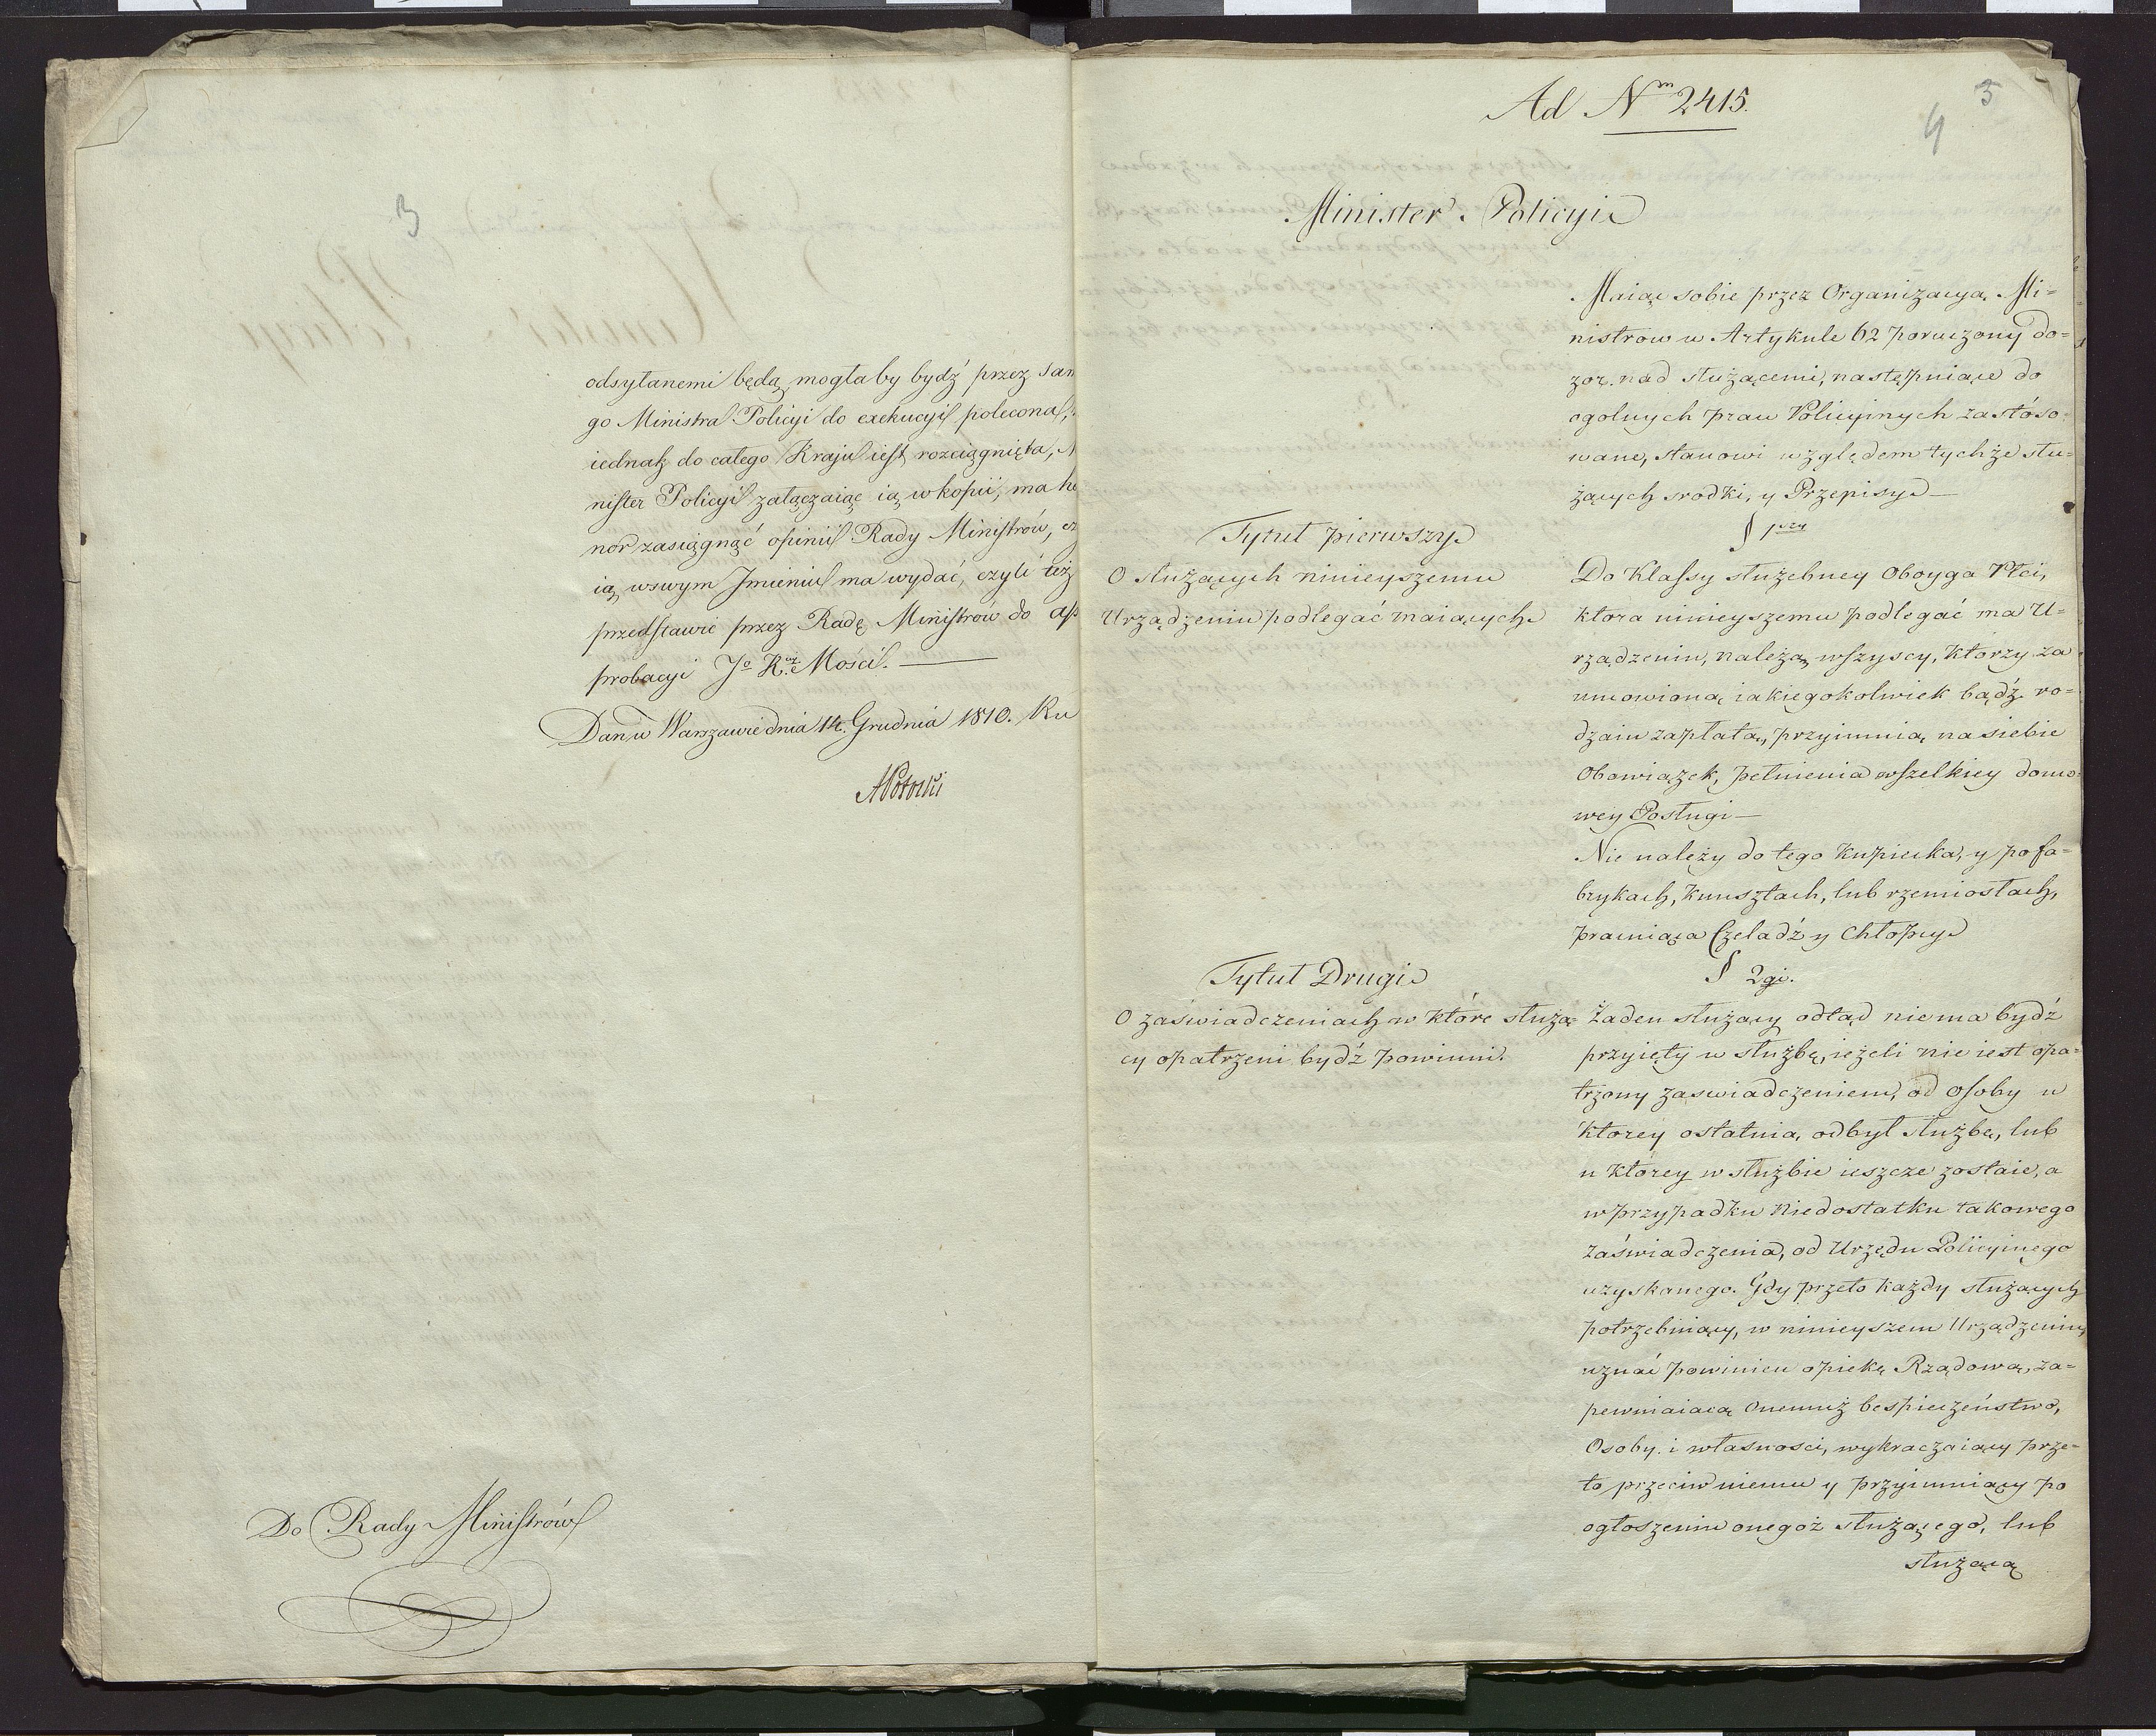 3
odsyłanemi będą mogłaby bydź przez sam
go Ministra Policyi do exekucyi polecona,
iednak do całego Kraju iest rozciągnięta, 
nister Policyi załączaiąc ią w kopii, ma ho
nor zasiągnąć opinii Rady Ministrów, cz
ią w swym Imieniu ma wydać, czyli też
przedstawić przez Radę Ministrów do ap
probacyi Jo Kcey Mości.
Dan w Warszawie dnia 14. Grudnia 1810. Ru
APotocki
Do Rady Ministrów
Ad Nm 2415.
4
3
Minister Policyi
Maiąc sobie przez Organizacyą Mi=
nistrow w Artykule 62 poruczony do=
zor nad służącemi, następuiące do
ogolnych praw Policyinych zastóso
wane, stanowi względem tychże słu=
żących srodki, y Przepisy
§ 1szy
Tytuł pierwszy
O służących ninieyszemu
Urządzeniu podlegać maiących
Do Klassy służebney Oboyga Płci,
ktora ninieyszemu podlegać ma U=
rządzeniu, należą wszyscy, ktorzy za
umowioną iakiegokolwiek bądź ro=
dzaiu zapłatą, przyimuią na siebie
Obowiązek, pełnienia wszelkiey domo=
wey Posługi
Nie należy do tego Kupiecka, y po fa=
brykach, kunsztach, lub rzemiosłach,
pracuiąca Czeladź y Chłopcy
Tytuł Drugi
§ 2gi.
O zaświadczeniach w które służą=
cy opatrzeni bydź powinni.
Żaden służący odtąd nie ma bydź
przyięty w służbę, ieżeli nie iest opa=
trzony zaswiadczeniem, od osoby u
ktorey ostatnią odbył służbę, lub
u ktorey w służbie ieszcze zostaie, a
w przypadku niedostatku takowego
zaświadczenia, od Urzędu Policyinego
uzyskanego. Gdy przeto każdy służących
potrzebuiący, w ninieyszem Urządzeniu,
uznać powinien opiekę Rządową, za=
pewniaiącą onemuż bespieczeństwo,
Osoby i własnosci, wykraczaiący prze=
to przeciw niemu y przyimuiący po
ogłoszeniu onegoż służącego, lub
służącą